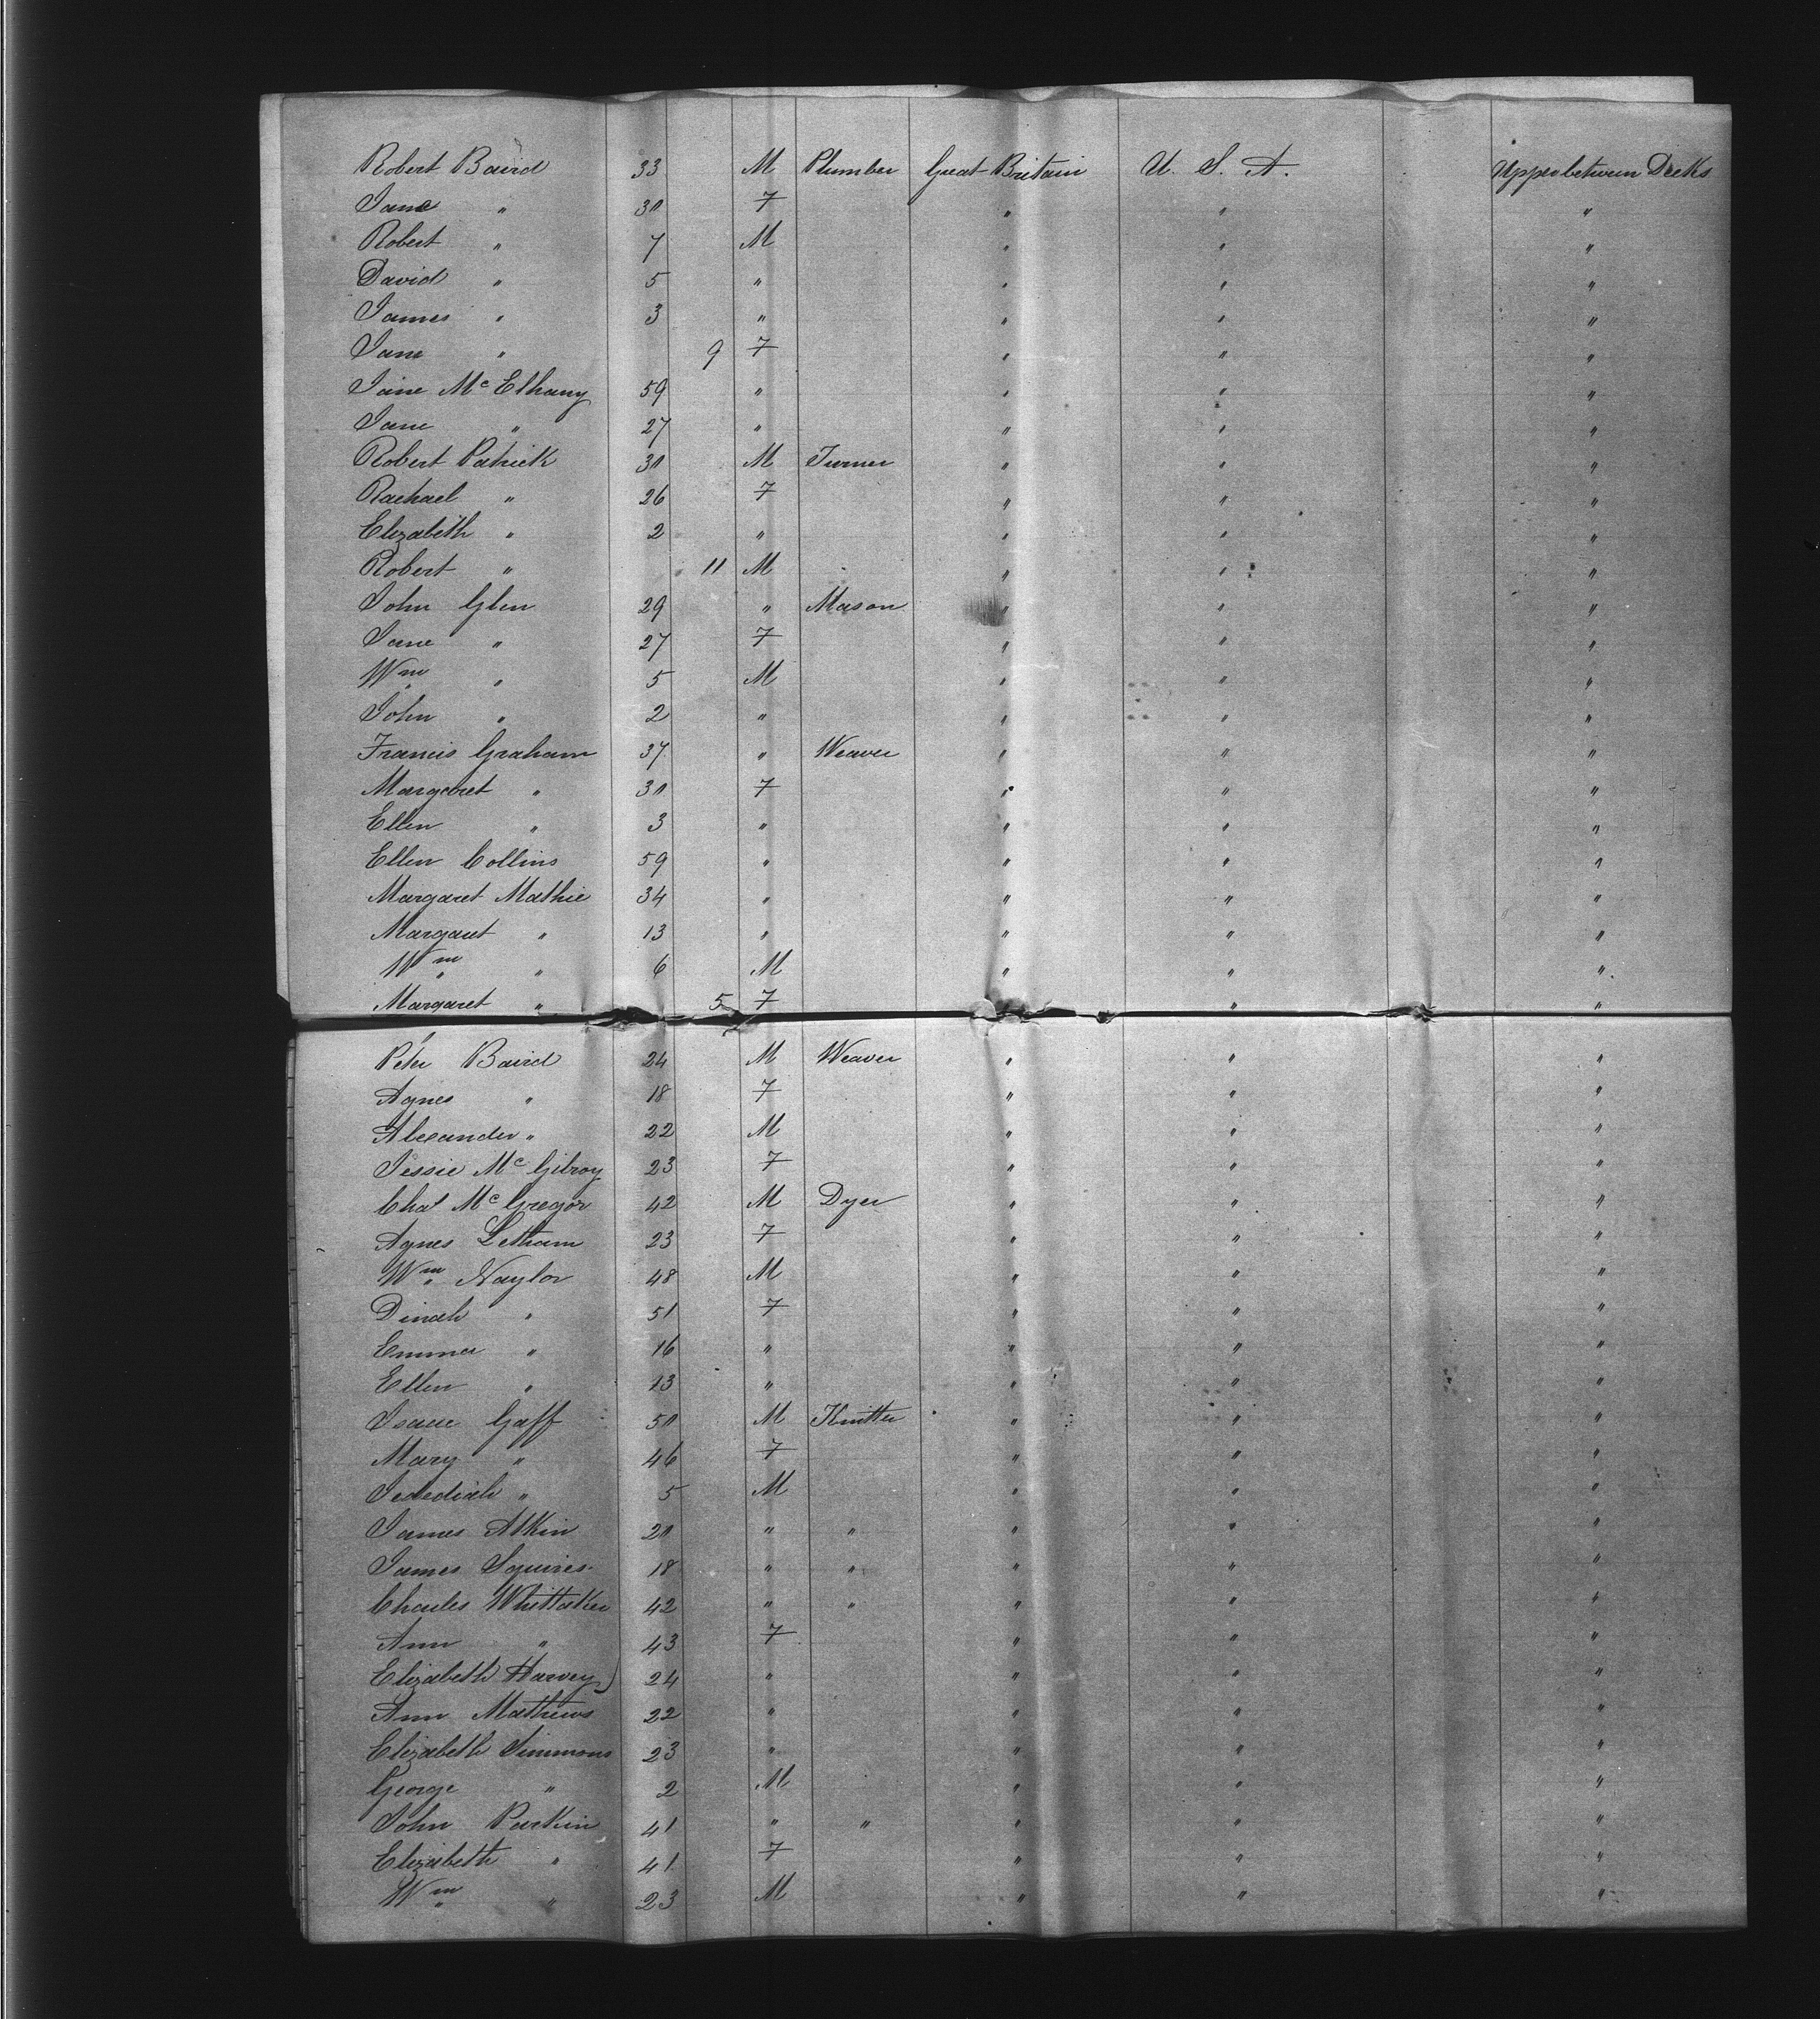 Robert Baird 33 M Plumber Great Britain U. S. A. Upper between Decks
Jane " 30 F " " "
Robert " 7 M " " "
David " 5 " " " "
James " 3 " " " "
Jane " 9 F " " "
Jane Mc Elhany 59 " " " "
Jane " 27 " " " "
Robert Patrick 30 M Turner " " "
Rachael " 26 F " " "
Elizabeth " 2 " " " "
Robert " 11 M " " "
John Glen 29 " Mason " " "
Jane " 27 F " " "
Wm " 5 M " " "
John " 2 " " " "
Francis Graham 37 " Weaver " " "
Margaret " 30 F " " "
Ellen " 3 " " " "
Ellen Collins 59 " " " "
Margaret Mathie 34 " " " "
Margaret " 13 " " " "
Wm " 6 M " " "
Margaret " 5 F " "
Peter Baird 24 M Weaver " " "
Agnes " 18 F " " "
Alexander " 22 M " " "
Jessie Mc Gilroy 23 F " " "
Chas Mc Gregor 42 M Dyer " " "
Agnes Letham 23 F " " "
Wm Naylor 48 M " " "
Dinah " 51 F " " "
Emma " 16 " " " "
Ellen " 13 " " " "
Isaac Goff 50 M Knitter " " "
Mary " 46 F " " "
Jedediah " 5 M " " "
James Atkin 20 " " " " "
James Squires 18 " " " " "
Charles Whittaker 42 " " " " "
Ann " 43 F " " "
Elizabeth Harvey 24 " " " "
Ann Mathews 22 " " " "
Elizabeth Simmons 23 " " " "
George " 2 M " " "
John Parkin 41 " " " " "
Elizabeth " 41 F " " "
Wm " 23 M " " "